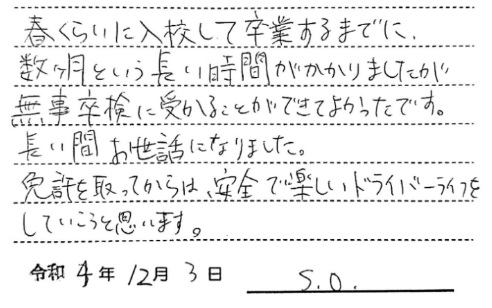 春くらいに入校して卒業するまでに、
数ヶ月という長い時間がかかりましたが
無事卒検に受かることができてよかったです。
長い間お世話になりました。
免許を取ってからは、安全で楽しいドライバーライフを
していこうと思います。
令和4年12月3日 S.O.